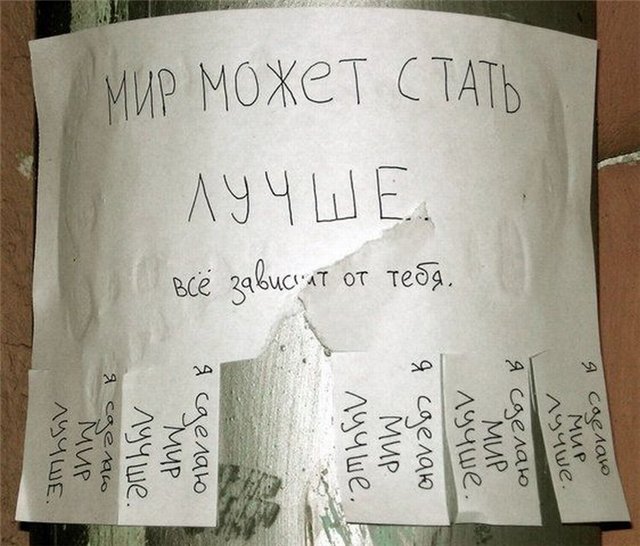 МИР МОЖЕТ СТАТЬ
ЛУЧШЕ...
всё зависит от тебя.
Я сделаю
МИР
ЛУЧШЕ.
Я сделаю
МИР
ЛУЧШЕ.
Я сделаю
МИР
ЛУЧШЕ.
Я сделаю
МИР
ЛУЧШЕ.
Я сделаю
МИР
ЛУЧШЕ.